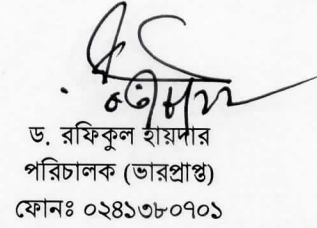 ড. রফিকুল হায়দার
পরিচালক (ভারপ্রাপ্ত)
ফোনঃ ০২৪১৩৮০৭০১